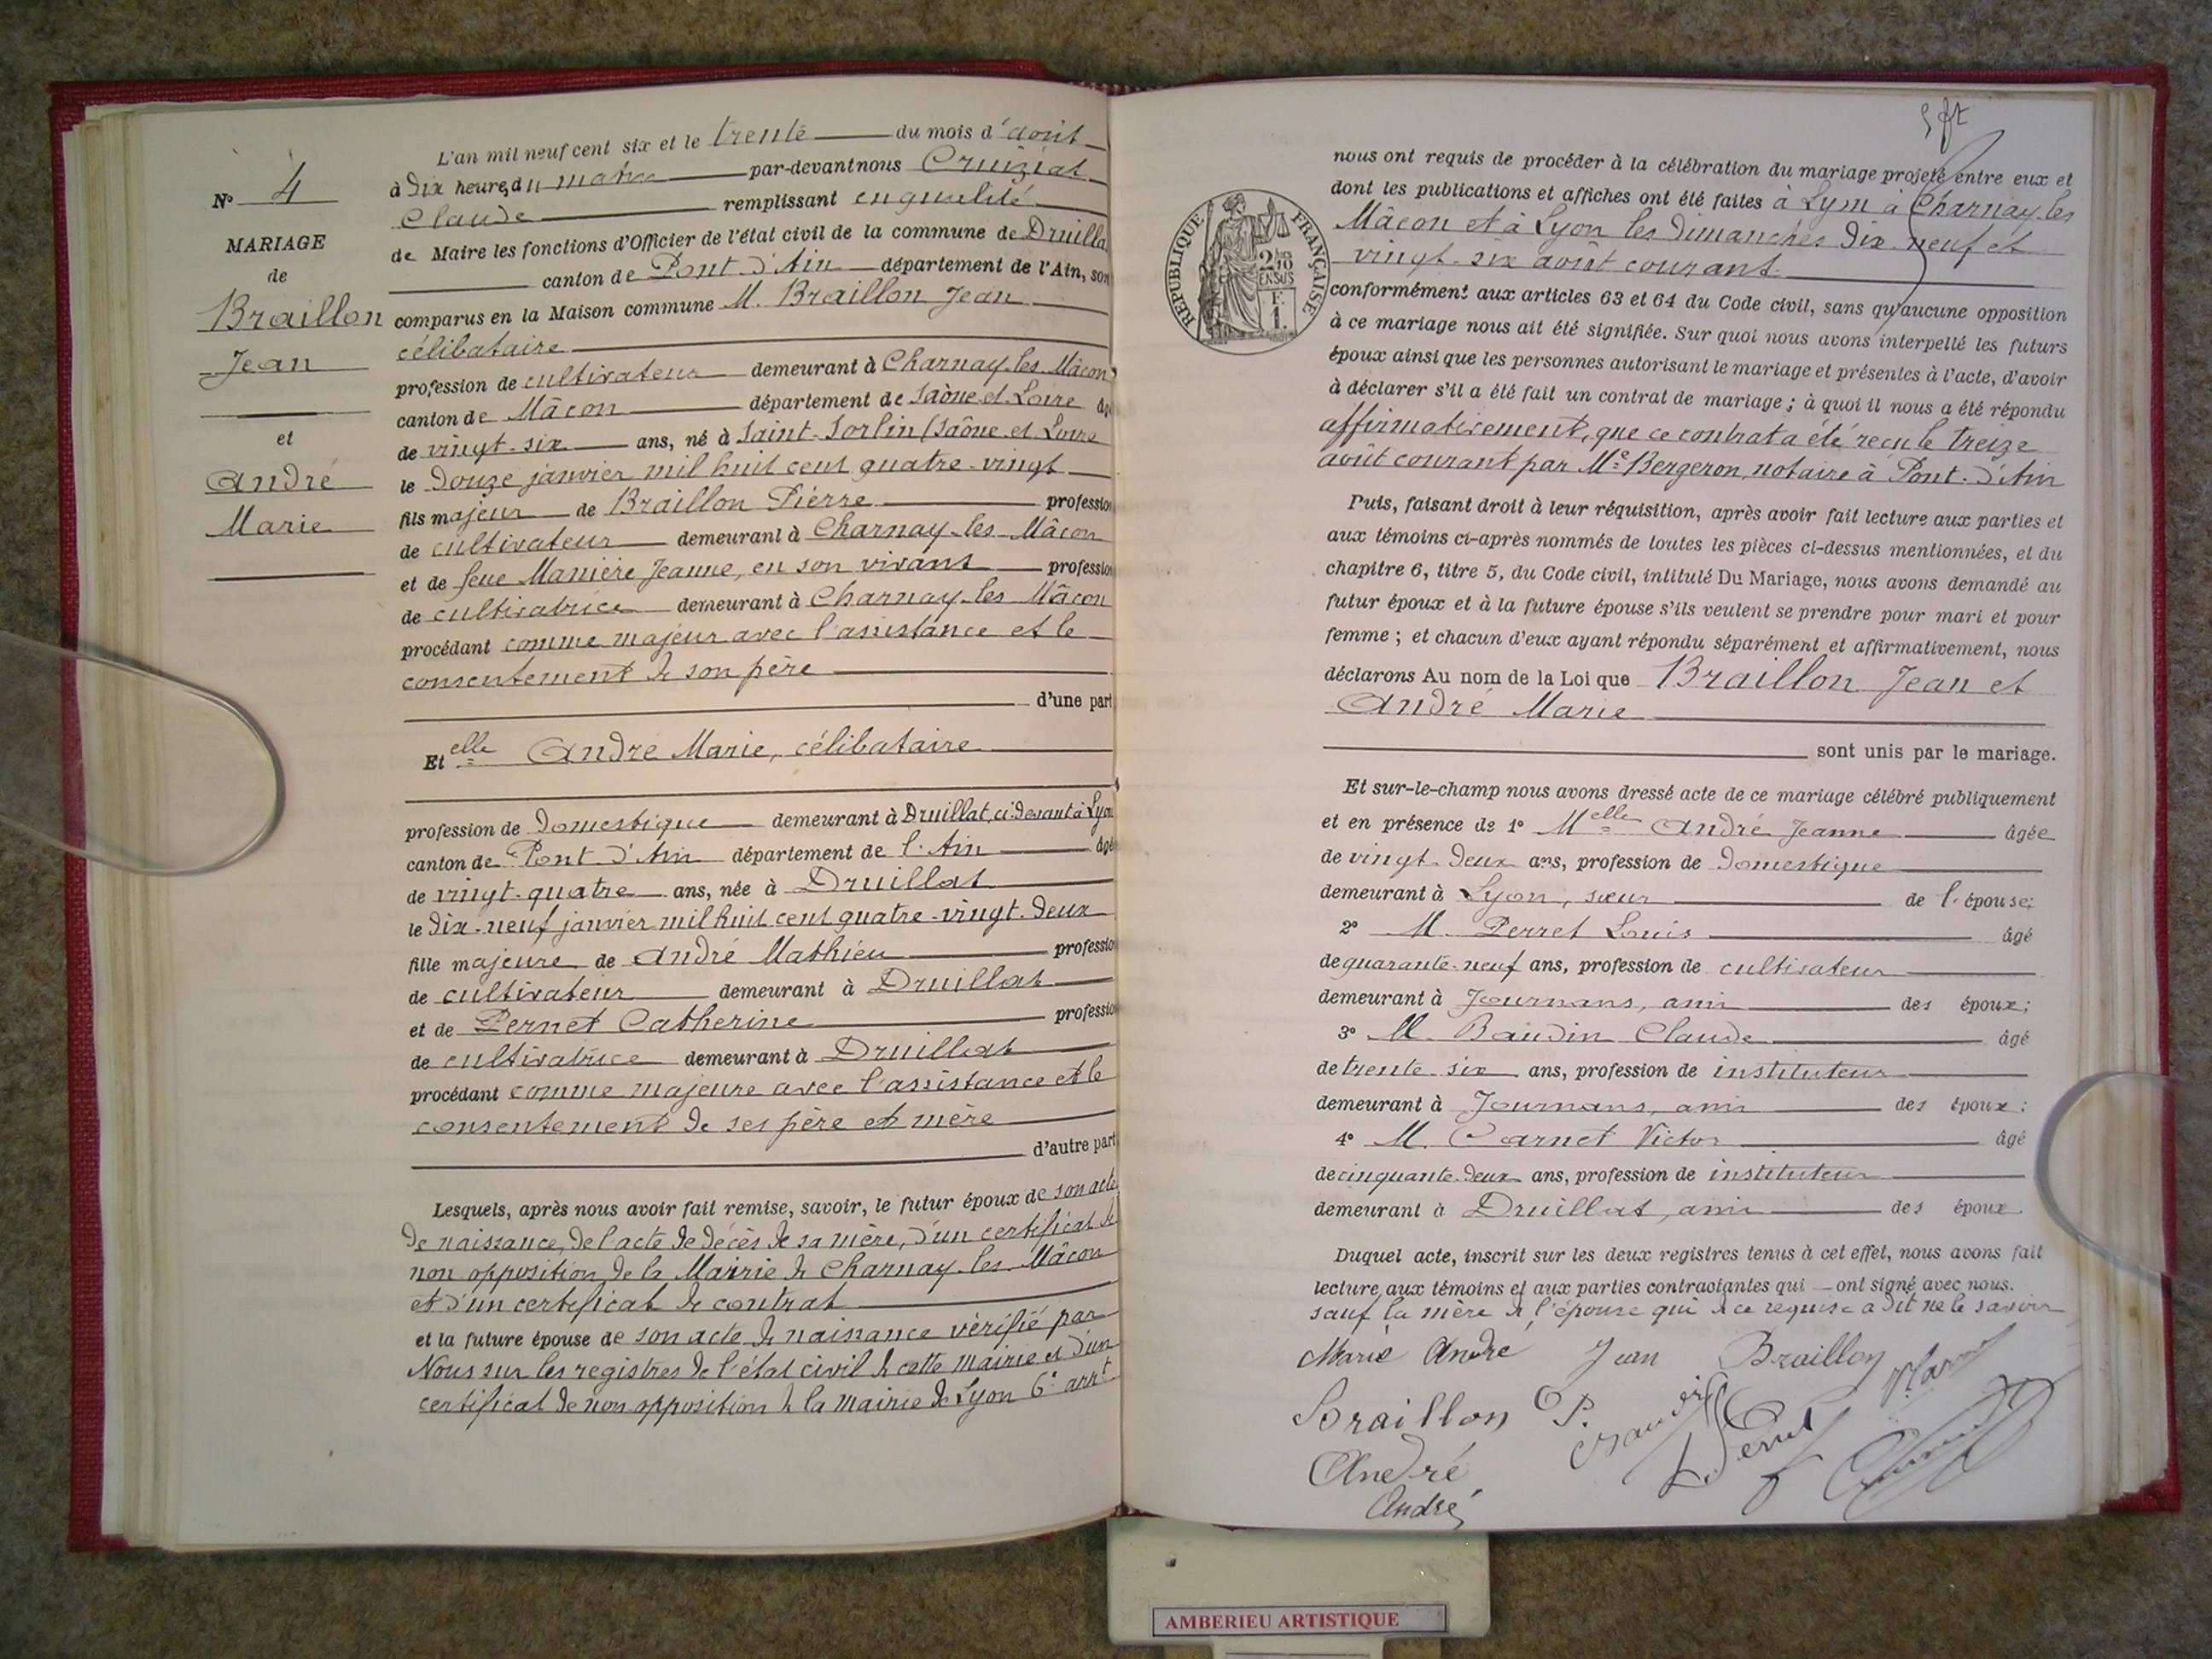 N° 4
MARIAGE
de
Braillon
Jean
et
André
Marie
L'an mil neuf cent six et le trente du mois d'août
à Dix heures du matin par-devant nous Cruiziat
Claude remplissant en qualité
de Maire les fonctions d'Officier de l'état civil de la commune de Druillat
canton de Pont d'Ain département de l'Ain, son
comparus en la Maison commune M. Braillon Jean
célibataire
profession de cultivateur demeurant à Charnay-les-Mâcon
canton de Mâcon département de Saône et Loire âgé
de vingt-six ans, né à Saint-Sorlin (Saône et Loire
le Douze janvier mil huit cent quatre-vingt
fils majeur de Braillon Pierre profession
de cultivateur demeurant à Charnay-les-Mâcon
et de feue Manière Jeanne, en son vivant profession
de cultivatrice demeurant à Charnay-les Mâcon
procédant comme majeur avec l'assistance et le
consentement de son père
d'une part
Et elle André Marie, célibataire
profession de Domestique demeurant à Druillat, ci-devant à Lyon
canton de Pont d'Ain département de l'Ain âgé
de vingt-quatre ans, née à Druillat
le Dix-neuf janvier mil huit cent quatre-vingt-Deux
fille majeure de André Mathieu profession
de cultivateur demeurant à Druillat
et de Pernet Catherine profession
de cultivatrice demeurant à Druillat
procédant comme majeure avec l'assistance et le
consentement de ses père et mère
d'autre part
Lesquels, après nous avoir fait remise, savoir, le futur époux de son acte
de naissance, de l'acte de décès de sa mère, d'un certificat de
non opposition de la Mairie de Charnay-les-Mâcon
et d'un certificat de contrat
et la future épouse de son acte de naissance vérifié par
Nous sur les registres de l'état civil de cette mairie et d'un
certificat de non opposition de la mairie de Lyon 6e arrt
nous ont requis de procéder à la célébration du mariage projeté entre eux et
dont les publications et affiches ont été faites à Lyon à Charnay-les
Mâcon et à Lyon les Dimanches Dix neuf et
vingt-six août courant
RÉPUBLIQUE FRANÇAISE
conformément aux articles 63 et 64 du Code civil, sans qu'aucune opposition
à ce mariage nous ait été signifiée. Sur quoi nous avons interpellé les futurs
époux ainsi que les personnes autorisant le mariage et présentes à l'acte, d'avoir
à déclarer s'il a été fait un contrat de mariage ; à quoi il nous a été répondu
affirmativement, que ce contrat a été reçu le treize
août courant par Me Bergeron, notaire à Pont-d'Ain
Puis, faisant droit à leur réquisition, après avoir fait lecture aux parties et
aux témoins ci-après nommés de toutes les pièces ci-dessus mentionnées, et du
chapitre 6, titre 5, du Code civil, intitulé Du Mariage, nous avons demandé au
futur époux et à la future épouse s'ils veulent se prendre pour mari et pour
femme ; et chacun d'eux ayant répondu séparément et affirmativement, nous
déclarons Au nom de la Loi que Braillon Jean et
André Marie
sont unis par le mariage.
Et sur-le-champ nous avons dressé acte de ce mariage célébré publiquement
et en présence de 1° Melle André Jeanne âgée
de vingt-Deux ans, profession de Domestique
demeurant à Lyon, sœur de l'épouse;
2° M. Perret Louis âgé
de quarante-neuf ans, profession de cultivateur
demeurant à Journans, ami des époux;
3° M. Baudin Claude âgé
de trente-six ans, profession de instituteur
demeurant à Journans, ami des époux:
4° M. Carnet Victor âgé
de cinquante-Deux ans, profession de instituteur
demeurant à Druillat, ami des époux.
Duquel acte, inscrit sur les deux registres tenus à cet effet, nous avons fait
lecture aux témoins et aux parties contractantes qui ont signé avec nous.
sauf la mère de l'épouse qui de ce requise a Dit ne le savoir
Marie André Jean Braillon
Braillon P.
André
André
AMBERIEU ARTISTIQUE